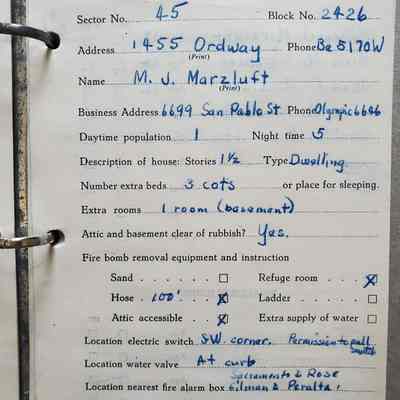 Sector No. 45 Block No. 2426
Address 1455 Ordway Phone Be 5170W
(Print)
Name M. J. Marzluft
(Print)
Business Address 6699 San Pablo St Phone Olympic 6646
Daytime population 1 Night time 5
Description of house: Stories 1½ Type Dwelling
Number extra beds 3 cots or place for sleeping.
Extra rooms 1 room (basement)
Attic and basement clear of rubbish? Yes.
Fire bomb removal equipment and instruction
Sand . . . . . ☐ Refuge room . . . . ☒
Hose . 100' . . ☒ Ladder . . . . . . ☐
Attic accessible . . ☒ Extra supply of water . ☐
Location electric switch SW. corner. Permission to pull
switch
Location water valve At curb
Sacramento & Rose
Location nearest fire alarm box Gilman & Peralta